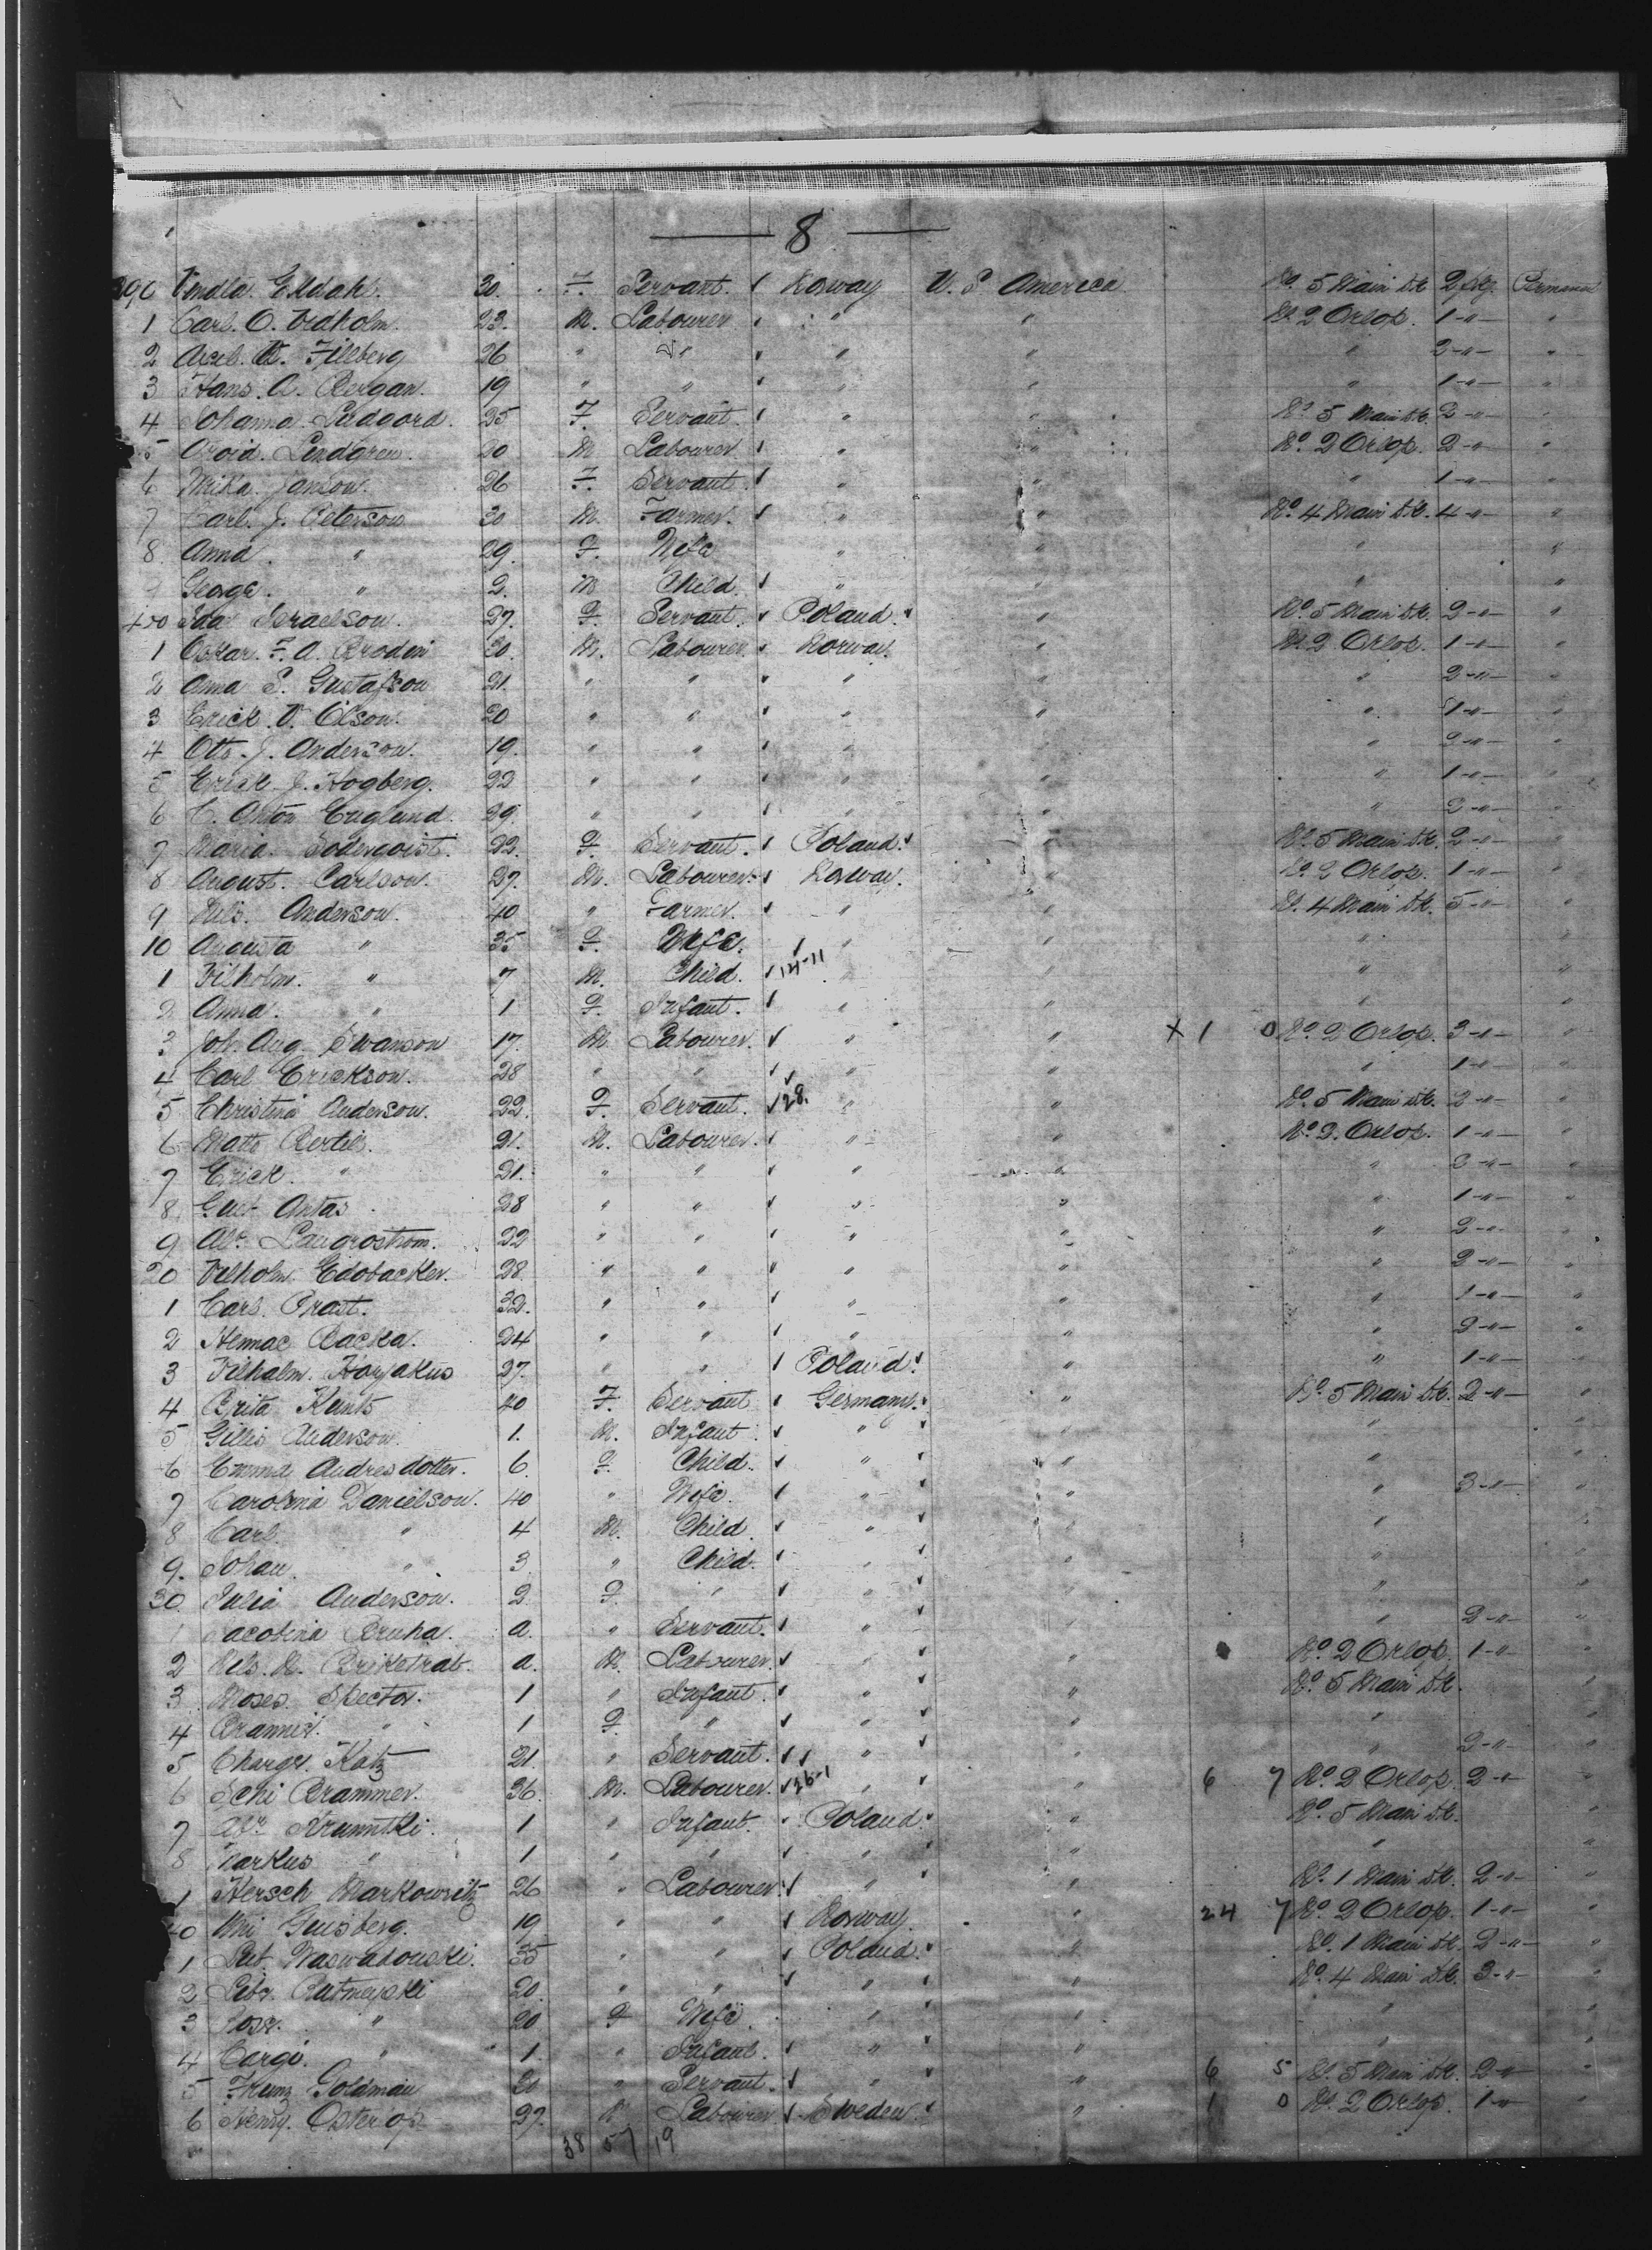 8
390 Vendla Ekdahl. 30. F. Servant. Norway U. S. America No. 5 Main Dk 2 pkg. Permanent
1 Carl. O. Vidholm. 23. M. Labourer " " No 2 Orlop. 1 -"- "
2 Axel. W. Fillberg 26 " " " " " 2 -"- "
3 Hans. A. Bergan. 19 " " " " " 1 -"- "
4 Johanna 25 F. Servant. " " No. 5 Main Dk. 2 -"- "
5 Lindgren. 20 M Labourer " " No. 2 Orlop. 2 -"- "
6 Mika. Janson. 26 F. Servant. " " " 1 -"- "
7 Carl. J. Peterson 30 M. Farmer. " " No. 4 Main Dk. 4 -"- "
8 Anna " 29. F. Wife " " " "
9 George. " 2. M Child. " " " "
400 Israelson. 27. F. Servant. Poland. " No. 5 Main Dk. 2 -"- "
1 Oskar. F. A. Brodin 20. M. Labourer. Norway. " No 2 Orlop. 1 -"- "
2 Anna S. Gustafson 21. " " " " " 2 -"- "
3 Erick. V. Olson. 20 " " " " " 1 -"- "
4 Otto. J. Anderson. 19. " " " " " 2 -"- "
5 Erick J. Hogberg. 22 " " " " " 1 -"- "
6 C. Anton Englund. 29. " " " " " 2 -"- "
7 Maria. Soderqoist. 22. F. Servant. Poland. " No. 5 Main Dk. 2 -"- "
8 August. Carlson. 27. M. Labourer. Norway. " No. 2 Orlop. 1 -"- "
9 Nils. Anderson. 40. " Farmer. " " No. 4 Main Dk. 5 -"- "
10 Augusta " 35 F. Wife. " " " "
1 Vilholm. " 7 M. Child. 14-11 " " " "
2 Anna. " 1 F. Infant. " " " "
3 Joh. Aug Swanson 17. M. Labourer. " " X 1 0 No. 2 Orlop. 3 -"- "
4 Carl Erickson. 28 " " " " " 1 -"- "
5 Christina Anderson. 22. F. Servant. 28. " " No. 5 Main Dk. 2 -"- "
6 Matts Bertils. 21. M. Labourer. " " No. 2. Orlop. 1 -"- "
7 Erick. " 21. " " " " " 2 -"- "
8 Gust Antas 28 " " " " " 1 -"- "
9 Langrostrom. 22 " " " " " 2 -"- "
20 Vilholm. Edobacker. 28. " " " " " 2 -"- "
1 Carl. Prast. 32. " " " " " 1 -"- "
2 Backa. 24 " " " " " 2 -"- "
3 Vilhalm. 27. " " Poland. " " 1 -"- "
4 Brita Kants 40 F. Servant Germany. " No. 5 Main Dk. 2 -"- "
5 Gillis Anderson. 1. M. Infant. " " " "
6 Emma Andresdotter. 6. F. Child. " " " "
7 Carolina Danielson. 40 " Wife. " " " 3 -"- "
8 Carl. " 4 M. Child. " " " "
9. Johan. " 3 " Child. " " " "
30 Julia Anderson. 2. F. " " " " "
1 Jacobina Bruha. a. " Servant. " " " 2 -"- "
2 Nels. N. a. M. Labourer. " " No. 2 Orlop. 1 -"- "
3 Moses. Spector. 1 " Infant. " " No. 5 Main Dk. "
4 " 1 F. " " " " "
5 Katz 21. " Servant. " " " 2 -"- "
6 Brammer. 36. M. Labourer. 26-1 " " 6 7 No. 2 Orlop. 2 -"- "
7 1 " Infant. Poland. " No. 5 Main Dk. "
8 Markus " 1 " " " " " "
1 Hersch Markowitz 26 " Labourer. " " No. 1 Main Dk. 2 -"- "
40 Ginsberg. 19 " " Norway. " 24 7 No. 2 Orlop. 1 -"- "
1 35 " " Poland. " No. 1 Main Dk. 2 -"- "
2 20. " " " " No. 4 Main Dk. 3 -"- "
3 " 20 F Wife. " " " "
4 " 1. " Infant. " " " "
5 Goldman 20 " Servant. " " 6 5 No. 5 Main Dk. 2 -"- "
6 Henry. 27. M Labourer Sweden. " 1 0 No. 2 Orlop. 1 -"- "
38 57 19